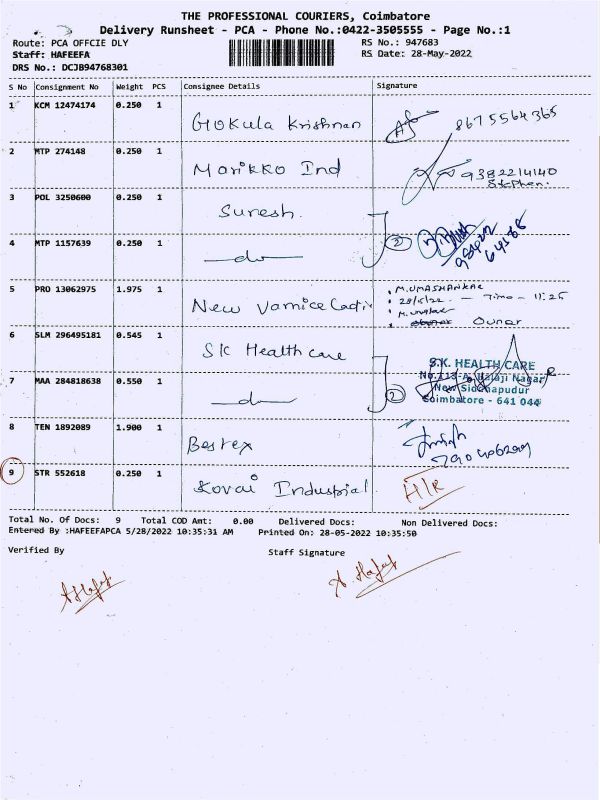 THE PROFESSIONAL COURIERS, Coimbatore
Delivery Runsheet - PCA - Phone No.:0422-3505555 - Page No.:1
Route: PCA OFFCIE DLY RS No.: 947683
Staff: HAFEEFA RS Date: 28-May-2022
DRS No.: DCJB94768301
S No Consignment No Weight PCS Consignee Details Signature
1 KCM 12474174 0.250 1 Gokula Krishnan 8675564365
2 MTP 274148 0.250 1 Marikko Ind 9382214140
Stephen.
3 POL 3250600 0.250 1 Suresh.
4 MTP 1157639 0.250 1 do 2
5 PRO 13062975 1.975 1 New M. UMASHANKAR
28/5/22 - Time - 11:25
Ownar
6 SLM 296495181 0.545 1 SK Health care
S.K. HEALTH CARE
7 MAA 284818638 0.550 1 do 2
New Siddhapudur
Coimbatore - 641 044
8 TEN 1892089 1.900 1 Bestex
9 STR 552618 0.250 1 Kovai Industrial
Total No. Of Docs: 9 Total COD Amt: 0.00 Delivered Docs: Non Delivered Docs:
Entered By :HAFEEFAPCA 5/28/2022 10:35:31 AM Printed On: 28-05-2022 10:35:50
Verified By Staff Signature